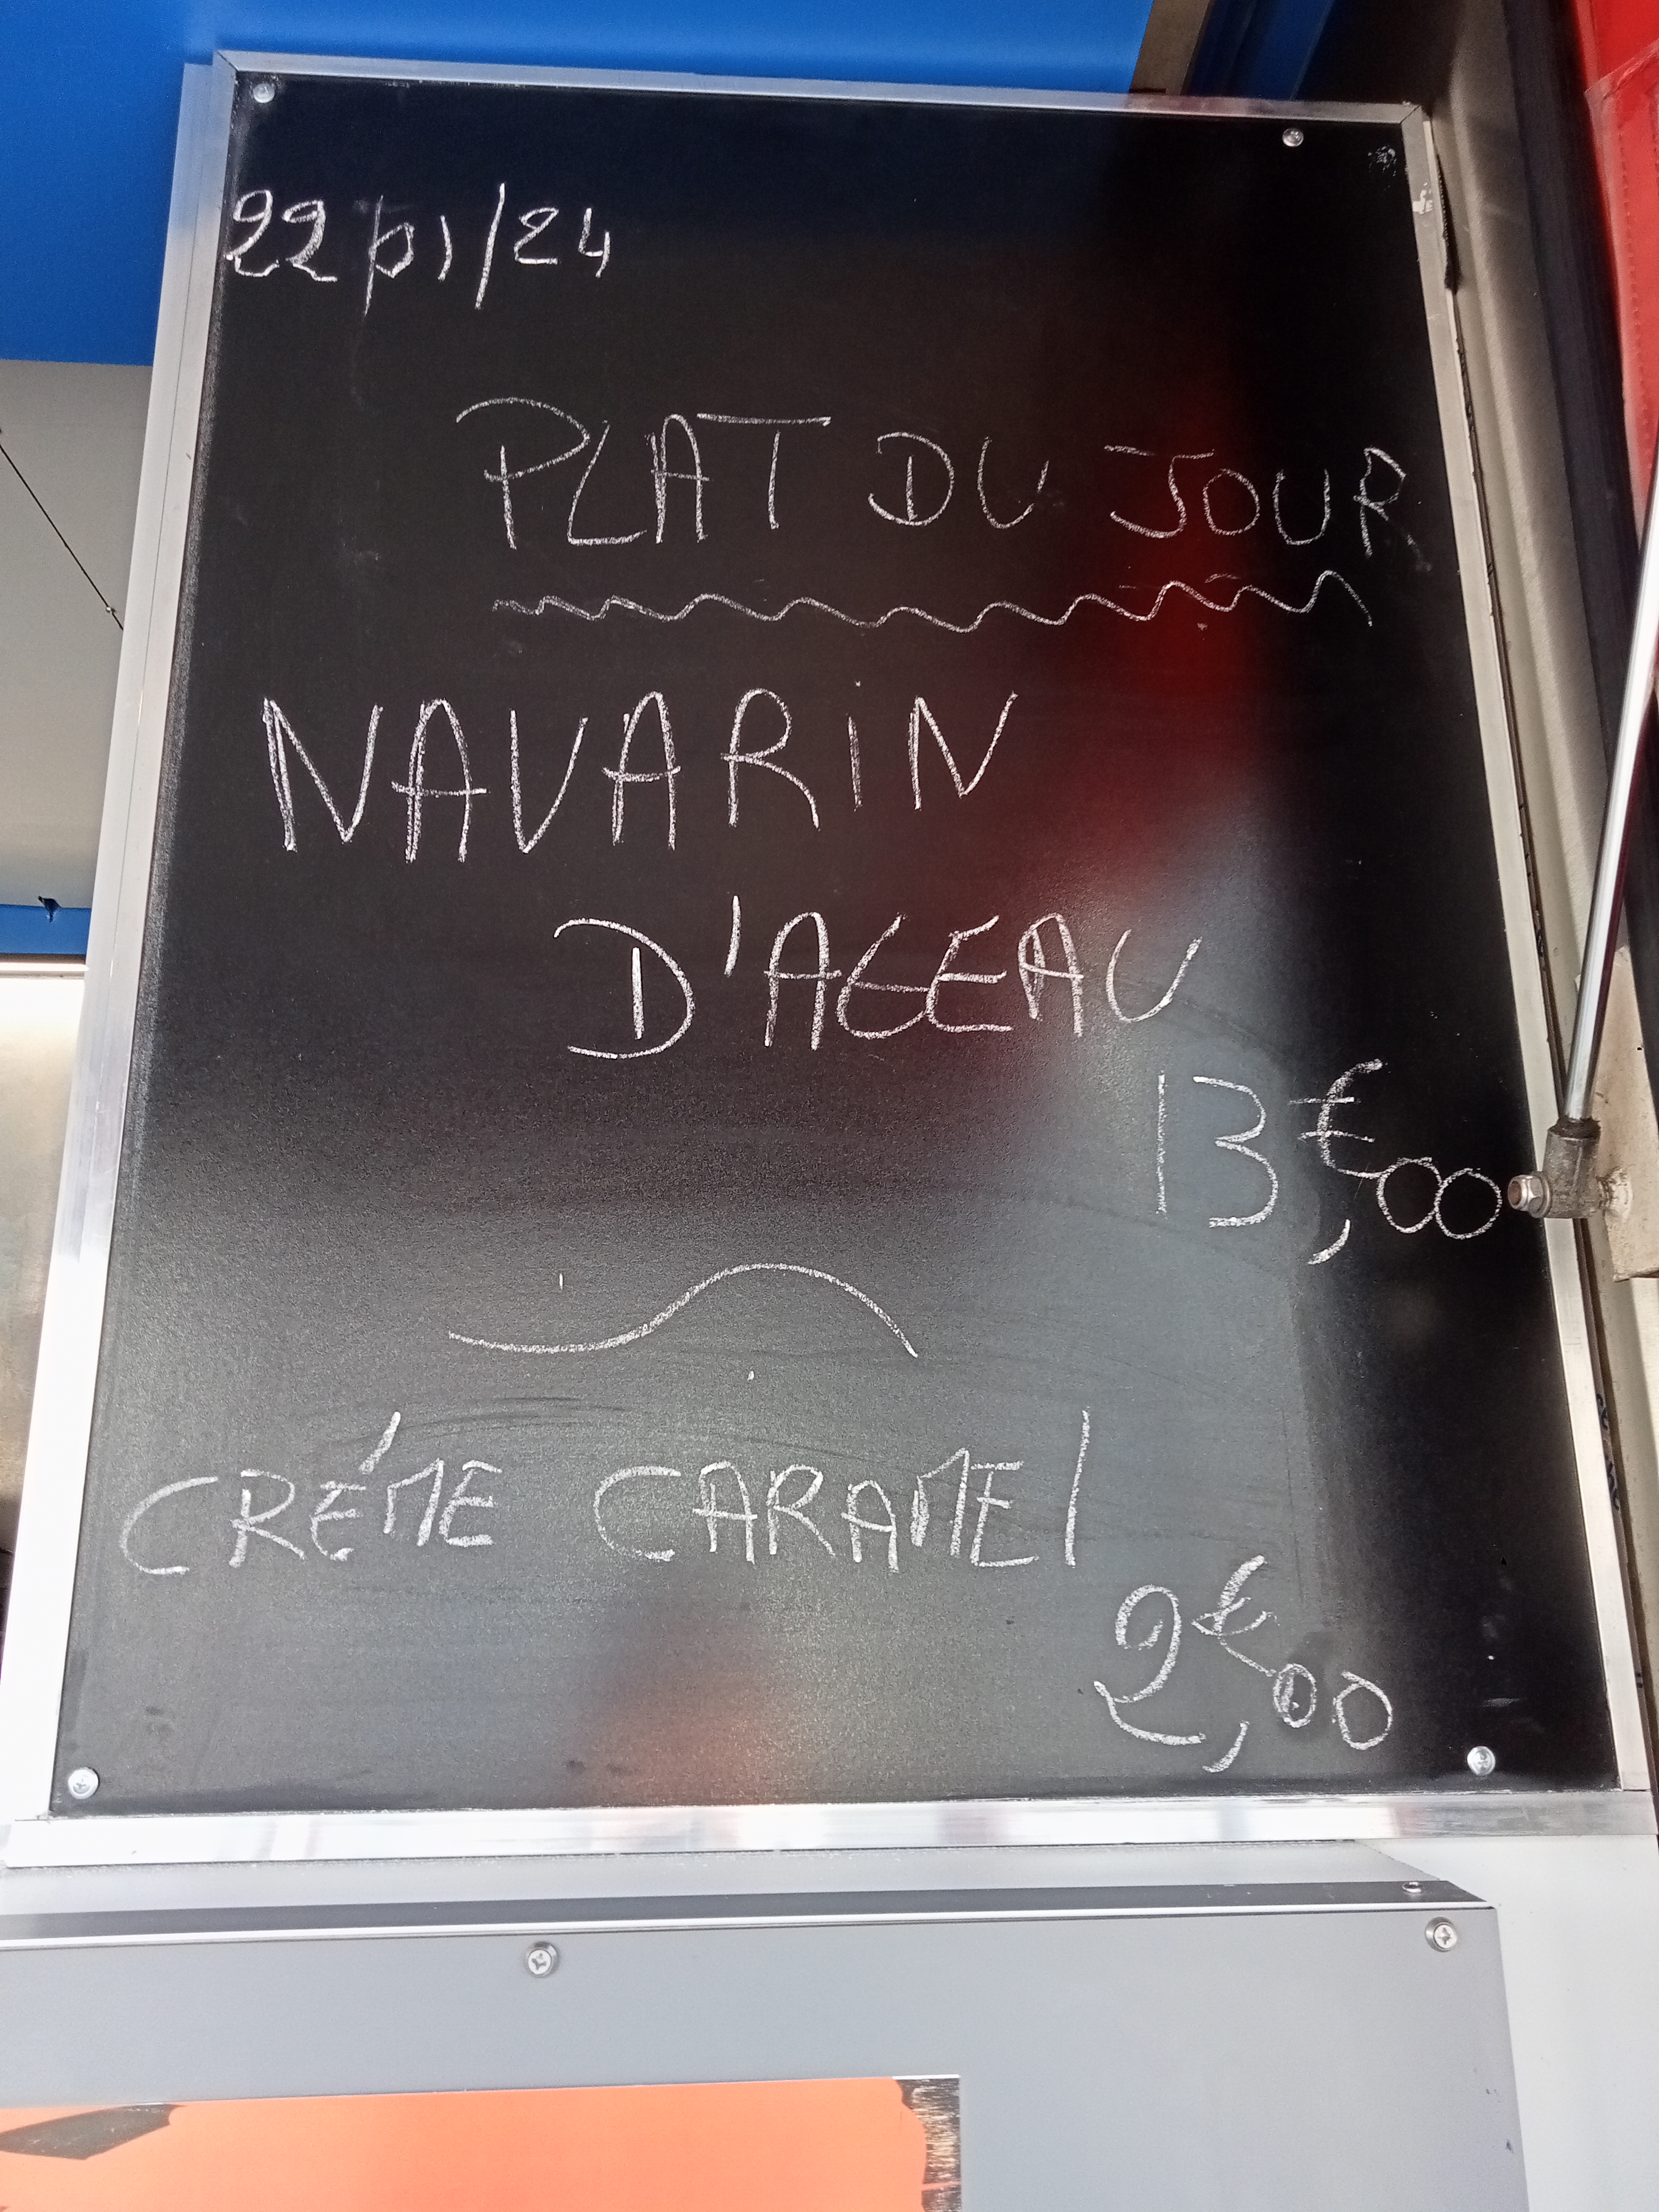 22/01/24
PLAT DU JOUR
NAVARiN
D'AGEAU
13€,00
CRÉME CARAMEl
2€,00